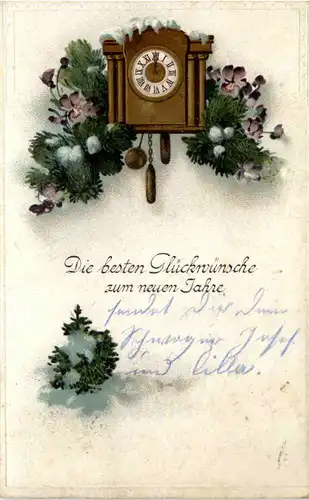 Die besten Glückwünsche
zum neuen Jahre
sendet Dir Dein
Schwager Josef
und Cilla.